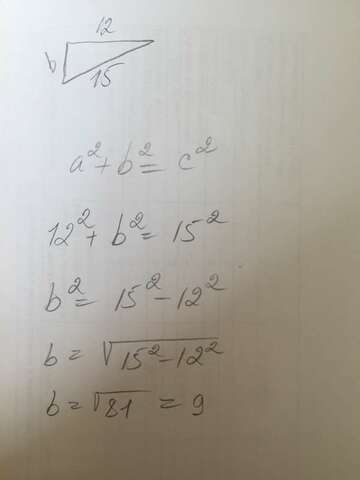 12
b
15
a² + b² = c²
12² + b² = 15²
b² = 15² - 12²
b = √(15² - 12²)
b = √81 = 9